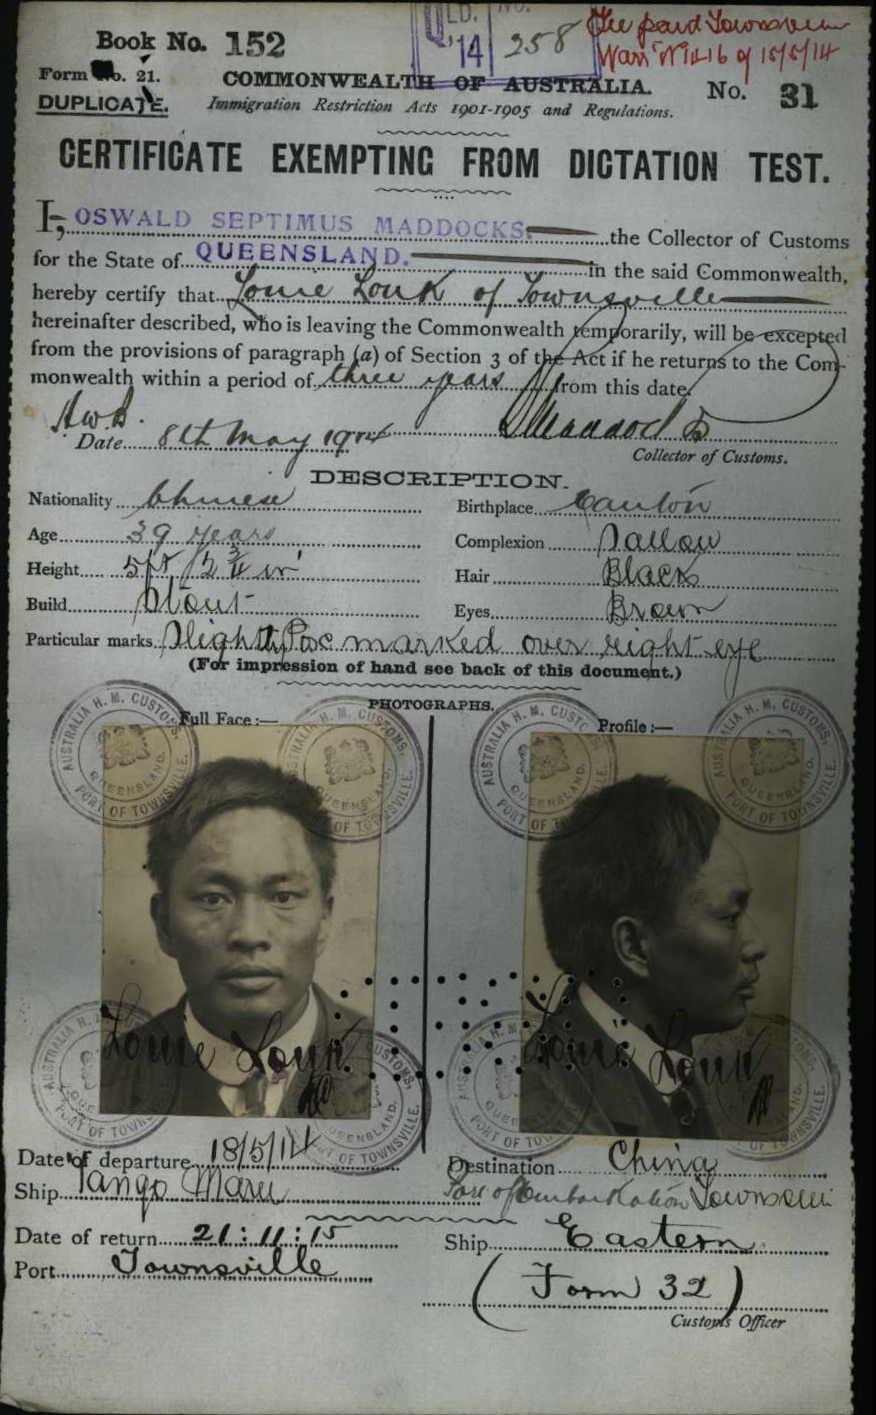 QLD. NO.
'14 258
Fee paid Townsville
Book No. 152
Form No. 21.
COMMONWEALTH OF AUSTRALIA.
No. 31
DUPLICATE.
Immigration Restriction Acts 1901-1905 and Regulations.
CERTIFICATE EXEMPTING FROM DICTATION TEST.
I, OSWALD SEPTIMUS MADDOCKS. the Collector of Customs
for the State of QUEENSLAND. in the said Commonwealth,
hereby certify that Louie Louk of Townsville
hereinafter described, who is leaving the Commonwealth temporarily, will be excepted
from the provisions of paragraph (a) of Section 3 of the Act if he returns to the Com-
monwealth within a period of three years from this date.
Date 8th May 1914
Maddocks
Collector of Customs.
DESCRIPTION.
Nationality Chinese
Birthplace Canton
Age 39 years
Complexion Sallow
Height 5ft 2¾ in
Hair Black
Build Stout
Eyes Brown
Particular marks Slightly Pox marked over right eye
(For impression of hand see back of this document.)
PHOTOGRAPHS.
Full Face:—
Profile:—
AUSTRALIA H. M. CUSTOMS, QUEENSLAND. PORT OF TOWNSVILLE.
AUSTRALIA H. M. CUSTOMS, QUEENSLAND. PORT OF TOWNSVILLE.
Louie Louk
Louie Louk
Date of departure 18/5/14
Destination China
Ship Tango Maru
Port of Embarkation Townsville
Date of return 21:11:15
Ship Eastern
Port Townsville
(Form 32)
Customs Officer